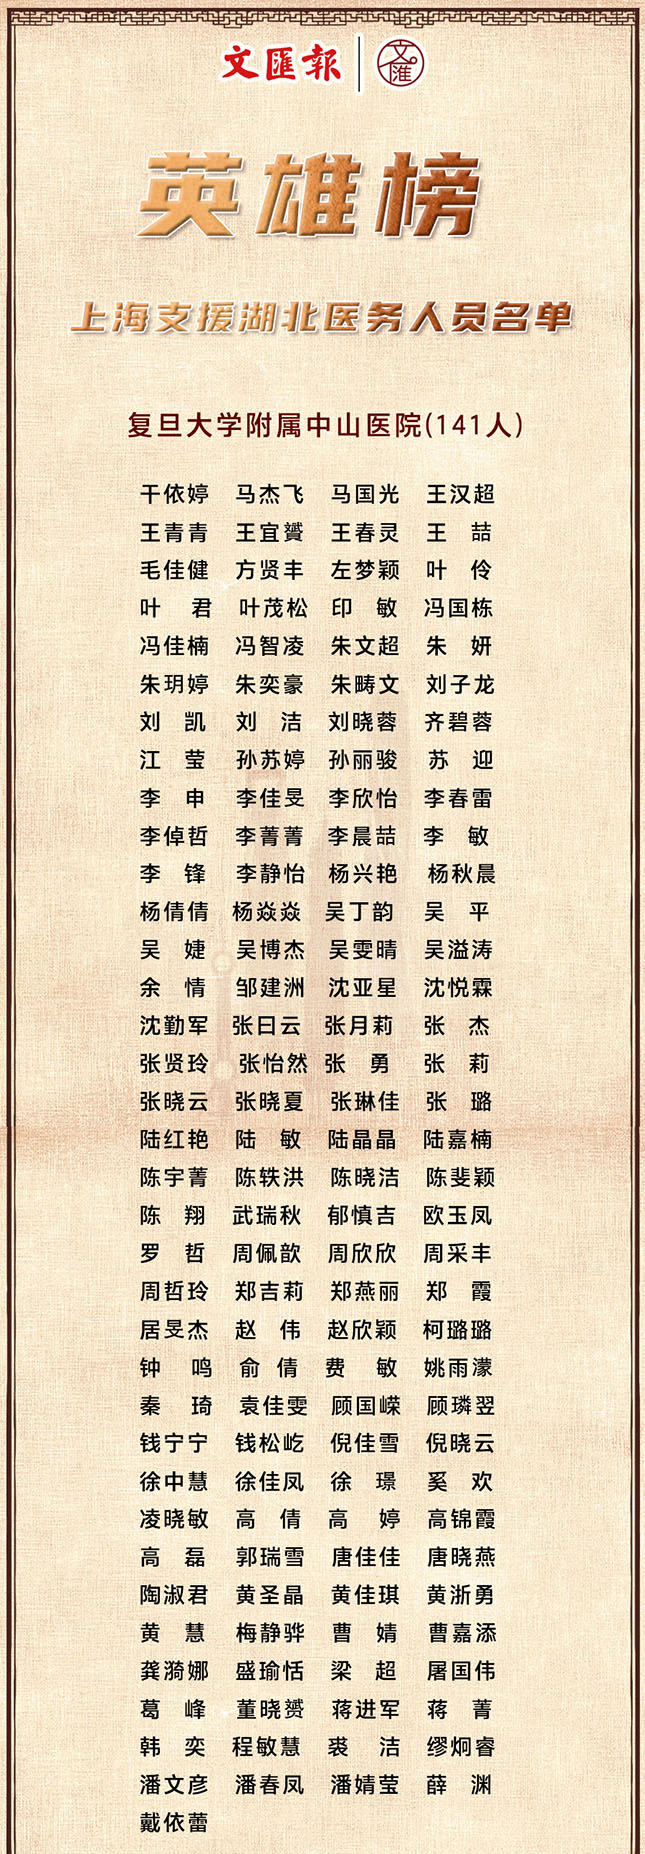 文匯報 文匯
英雄榜
上海支援湖北医务人员名单
复旦大学附属中山医院(141人)
干依婷 马杰飞 马国光 王汉超
王青青 王宜赟 王春灵 王 喆
毛佳健 方贤丰 左梦颖 叶 伶
叶 君 叶茂松 印 敏 冯国栋
冯佳楠 冯智凌 朱文超 朱 妍
朱玥婷 朱奕豪 朱畴文 刘子龙
刘 凯 刘 洁 刘晓蓉 齐碧蓉
江 莹 孙苏婷 孙丽骏 苏 迎
李 申 李佳旻 李欣怡 李春雷
李倬哲 李菁菁 李晨喆 李 敏
李 锋 李静怡 杨兴艳 杨秋晨
杨倩倩 杨焱焱 吴丁韵 吴 平
吴 婕 吴博杰 吴雯晴 吴溢涛
余 情 邹建洲 沈亚星 沈悦霖
沈勤军 张曰云 张月莉 张 杰
张贤玲 张怡然 张 勇 张 莉
张晓云 张晓夏 张琳佳 张 璐
陆红艳 陆 敏 陆晶晶 陆嘉楠
陈宇菁 陈轶洪 陈晓洁 陈斐颖
陈 翔 武瑞秋 郁慎吉 欧玉凤
罗 哲 周佩歆 周欣欣 周采丰
周哲玲 郑吉莉 郑燕丽 郑 霞
居旻杰 赵 伟 赵欣颖 柯璐璐
钟 鸣 俞 倩 费 敏 姚雨濛
秦 琦 袁佳雯 顾国嵘 顾璘翌
钱宁宁 钱松屹 倪佳雪 倪晓云
徐中慧 徐佳凤 徐 璟 奚 欢
凌晓敏 高 倩 高 婷 高锦霞
高 磊 郭瑞雪 唐佳佳 唐晓燕
陶淑君 黄圣晶 黄佳琪 黄浙勇
黄 慧 梅静骅 曹 婧 曹嘉添
龚漪娜 盛瑜恬 梁 超 屠国伟
葛 峰 董晓赟 蒋进军 蒋 菁
韩 奕 程敏慧 裘 洁 缪炯睿
潘文彦 潘春凤 潘婧莹 薛 渊
戴依蕾